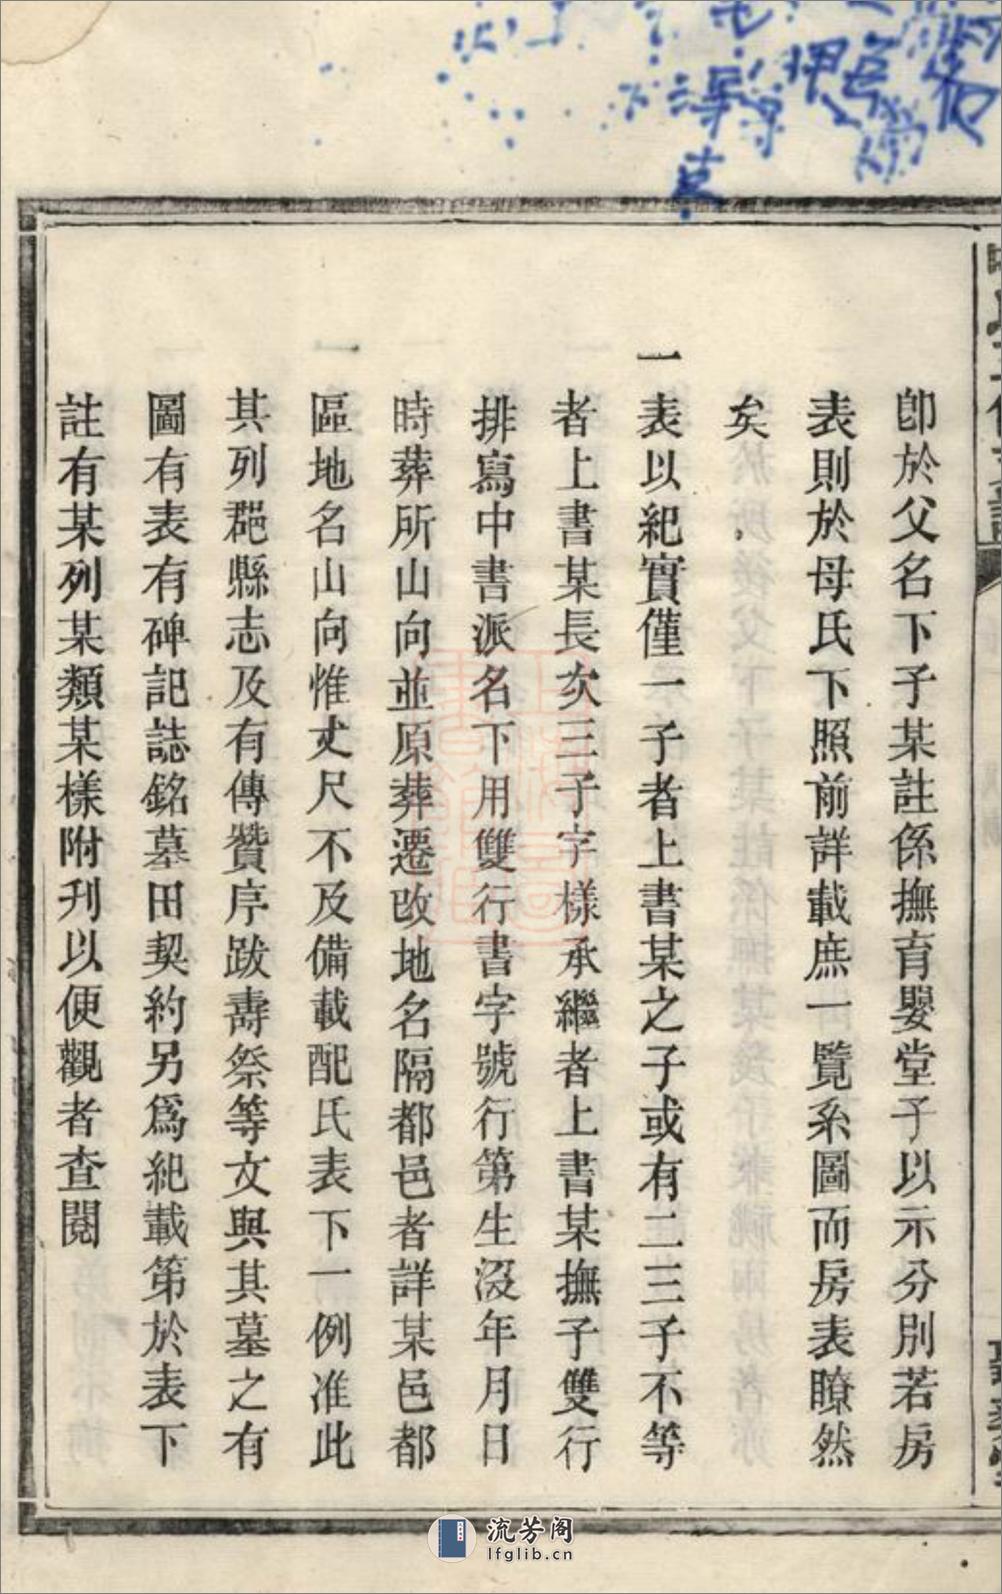 卽於父名下子某註係撫育嬰堂子以示分別若房
表則於母氏下照前詳載庶一覽系圖而房表瞭然
矣
一表以紀實僅一子者上書某之子或有二三子不等
者上書某長次三子字樣承繼者上書某撫子雙行
排寫中書派名下用雙行書字號行第生沒年月日
時葬所山向並原葬遷改地名隔都邑者詳某邑都
區地名山向惟丈尺不及備載配氏表下一例准此
其列郡縣志及有傳贊序跋壽祭等文與其墓之有
圖有表有碑記誌銘墓田契約另爲紀載第於表下
註有某列某類某樣附刋以便觀者查閱
流芳阁
lfglib.cn